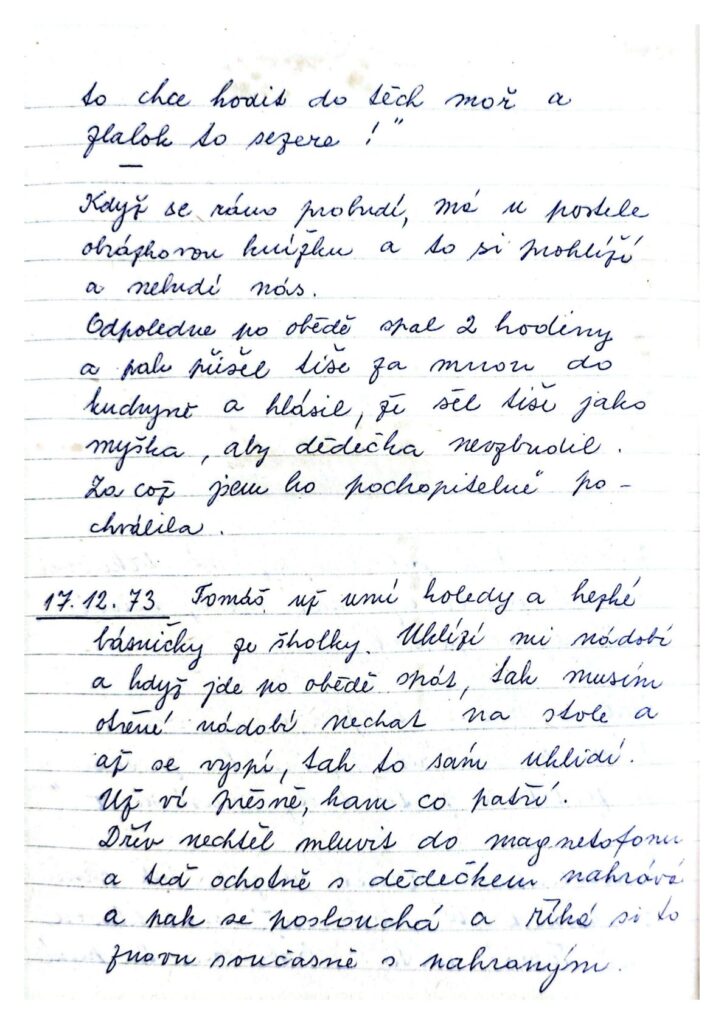 to chce hodit do těch moř a
žlalok to sezere!"
Když se ráno probudí, má u postele
obrázkovou knížku a to si prohlíží
a nebudí nás.
Odpoledne po obědě spal 2 hodiny
a pak přišel tiše za mnou do
kuchyně a hlásil, že šel tiše jako
myška, aby dědečka nevzbudil.
Za což jsem ho pochopitelně po-
chválila.
17.12.73 Tomáš už umí koledy a hezké
básničky ze školky. Uklízí mi nádobí
a když jde po obědě spát, tak musím
otřené nádobí nechat na stole a
až se vyspí, tak to sám uklidí.
Už ví přesně, kam co patří.
Dřív nechtěl mluvit do magnetofonu
a teď ochotně s dědečkem nahrává
a pak se poslouchá a říká si to
znovu současně s nahraným.